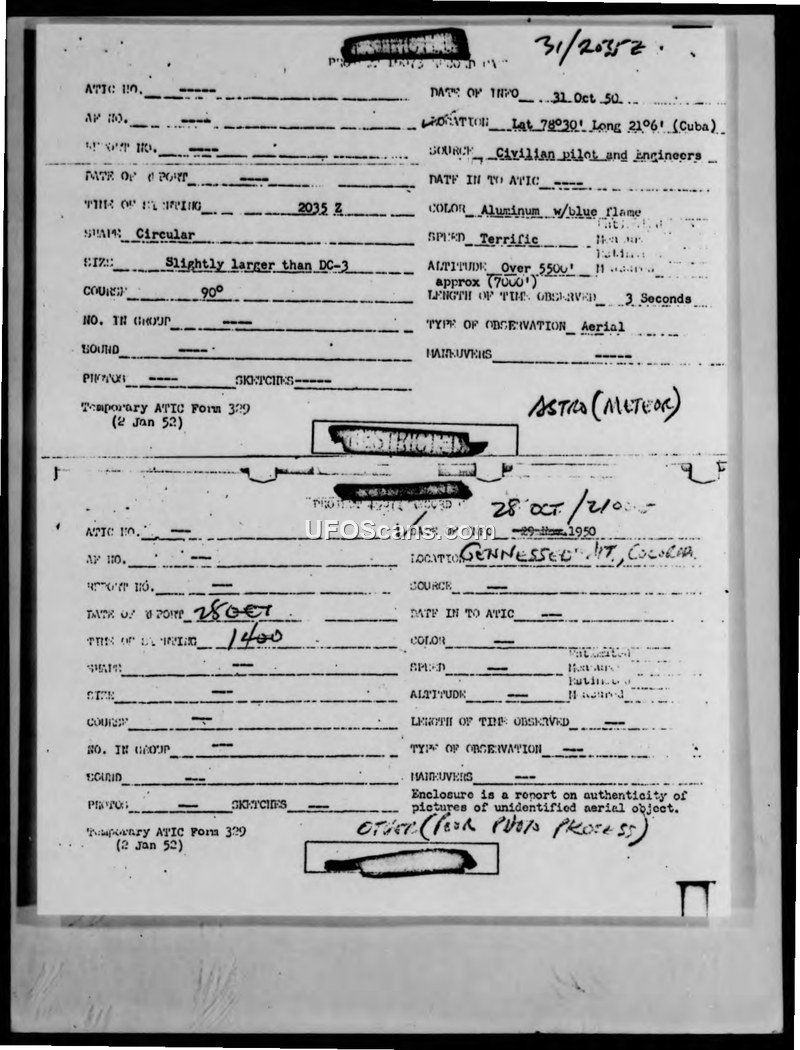 31/2035Z
ATIC NO. -----
DATE OF INFO 31 Oct 50
AF NO. ----
LOCATION Lat 78°30' Long 21°6' (Cuba)
REPORT NO. ----
SOURCE Civilian pilot and Engineers
DATE OF REPORT ----
DATE IN TO ATIC ----
TIME OF SIGHTING 2035 Z
COLOR Aluminum w/blue flame
SHAPE Circular
SPEED Terrific
SIZE Slightly larger than DC-3
ALTITUDE Over 5500'
approx (7000')
COURSE 90°
LENGTH OF TIME OBSERVED 3 Seconds
NO. IN GROUP ----
TYPE OF OBSERVATION Aerial
SOUND ----
MANEUVERS -----
PHOTOS ---- SKETCHES-----
Temporary ATIC Form 329
(2 Jan 52)
ASTRO (METEOR)
RESTRICTED
28 OCT /
UFOScans.com
ATIC NO. --
1950
AF NO. --
LOCATION
REPORT NO. --
SOURCE --
DATE OF REPORT 28 OCT
DATE IN TO ATIC --
TIME OF SIGHTING 1400
COLOR --
SHAPE --
SPEED --
Estimated
Measured
SIZE --
ALTITUDE --
Estimated
Measured
COURSE --
LENGTH OF TIME OBSERVED --
NO. IN GROUP ---
TYPE OF OBSERVATION ---
SOUND ---
MANEUVERS ---
PHOTOS -- SKETCHES --
Enclosure is a report on authenticity of
pictures of unidentified aerial object.
Temporary ATIC Form 329
(2 Jan 52)
OTHER (POOR PHOTO PROCESS)